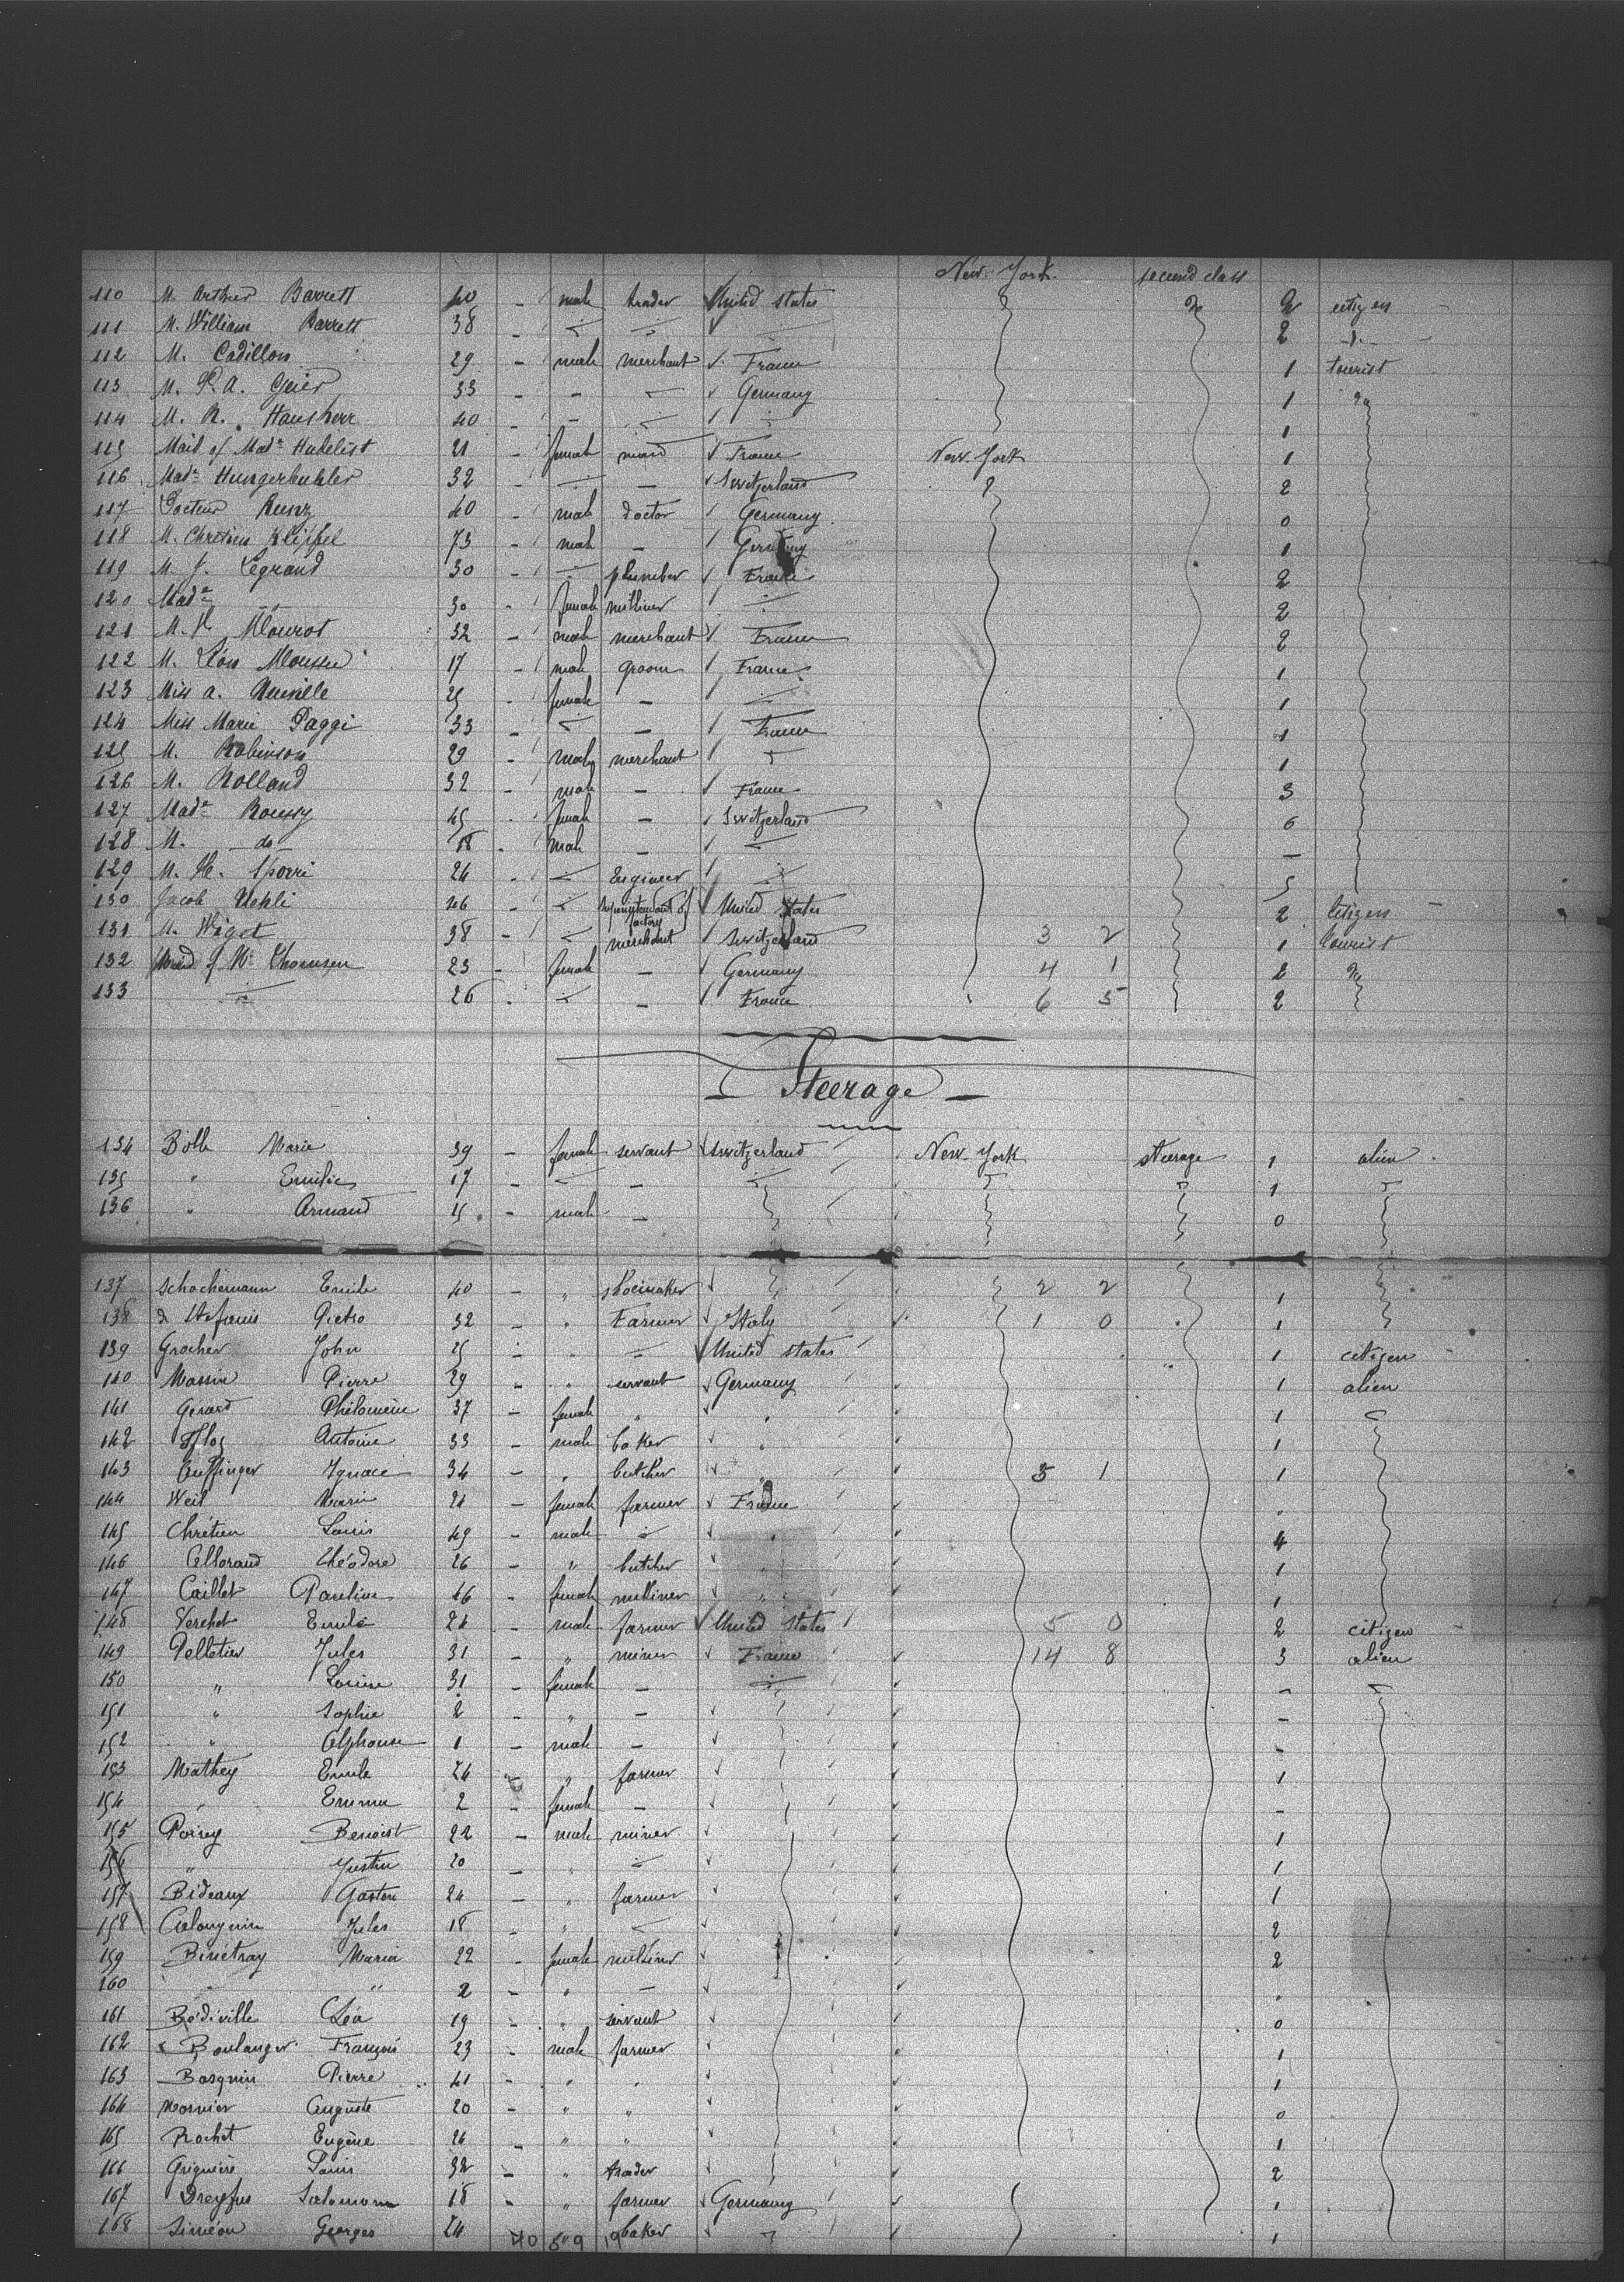 New-York. second class
110 M. Arthur Barrett 40 - male trader United States 2 citizen
111 M. William Barrett 38 - 2 -d-
112 M. Cadillon 29 - male merchant France 1 tourist
113 M. P. A. Geier 33 - - - Germany 1 do
114 M. R. Hausherr 40 - 1
115 Maid of Made Hubelist 21 - female maid France New-York 1
116 Made Hungerbuhler 32 - - Switzerland 2
117 Docteur Kunz 40 - male doctor Germany 0
118 M. Chretien Kleiffel 73 - male - Germany 1
119 M. J. Legrand 30 - plumber France 2
120 Made -"- 30 - female milliner 2
121 M. H. Mourot 32 - male merchant France 2
122 M. Léon Mousseu 17 - male groom France 1
123 Miss A. Neuville 25 - female - 1
124 Miss Marie Paggi 33 - - France 1
125 M. Robinson 29 - male merchant 1
126 M. Rolland 32 - male - France 3
127 Made Roussy 45 - female - Switzerland 6
128 M. -do- 18 - male - -
129 M. H. Sporri 24 - Engineer 5
130 Jacob Uehli 46 - Superintendant of factory United States 2 Citizen -
131 M. Wiget 38 - merchant Switzerland 3 2 1 tourist
132 Maid of Mr Thomsen 23 - female - Germany 4 1 2 do
133 26 - - France 6 5 2
- Steerage -
134 Bolle Marie 39 - female servant Switzerland New-York steerage 1 alien
135 " Emilie 17 - - 1
136 " Armand 15 - male - 0
137 Schachemann Emile 40 - " shoemaker 2 2 1
138 de Stefanis Pietro 32 - " Farmer Italy 1 0 1
139 Grocher John 25 - " United States 1 citizen
140 Massin Pierre 29 - " servant Germany 1 alien
141 Gerard Philomène 37 - female " " 1
142 Antoine 33 - male baker " 1
143 Ignace 34 - " butcher " 5 1 1
144 Weil Marie 21 - female farmer France "
145 Chrétien Louis 49 - male " 4
146 Allorand Théodore 26 - " butcher " 1
147 Caillet Pauline 46 - female milliner " 1
148 Verchot Emile 24 - male farmer United States 5 0 2 citizen
149 Pelletier Jules 31 - " miner France 14 8 3 alien
150 " Louise 31 - female - -
151 " Sophie 2 - " - -
152 " Alphonse 1 - male - -
153 Mathey Emile 24 - " farmer 1
154 " Emma 2 - female - -
155 Poirey Benoist 22 - male miner 1
156 " Justin 20 - " 1
157 Bideaux Gaston 24 - " farmer 1
158 Jules 18 - " 2
159 Binétray Maria 22 - female milliner 2
160 " " 2 - " - "
161 Bédiville Léa 19 - " servant 0
162 Boulanger François 23 - male farmer 1
163 Basquin Pierre 41 - " " 1
164 Mornier Auguste 20 - " " 0
165 Rochet Eugène 26 - " " 1
166 Grignière Louis 32 - " trader 2
167 Dreyfus Salomon 18 - " farmer Germany 1
168 Siméon Georges 24 baker 1
40 59 19